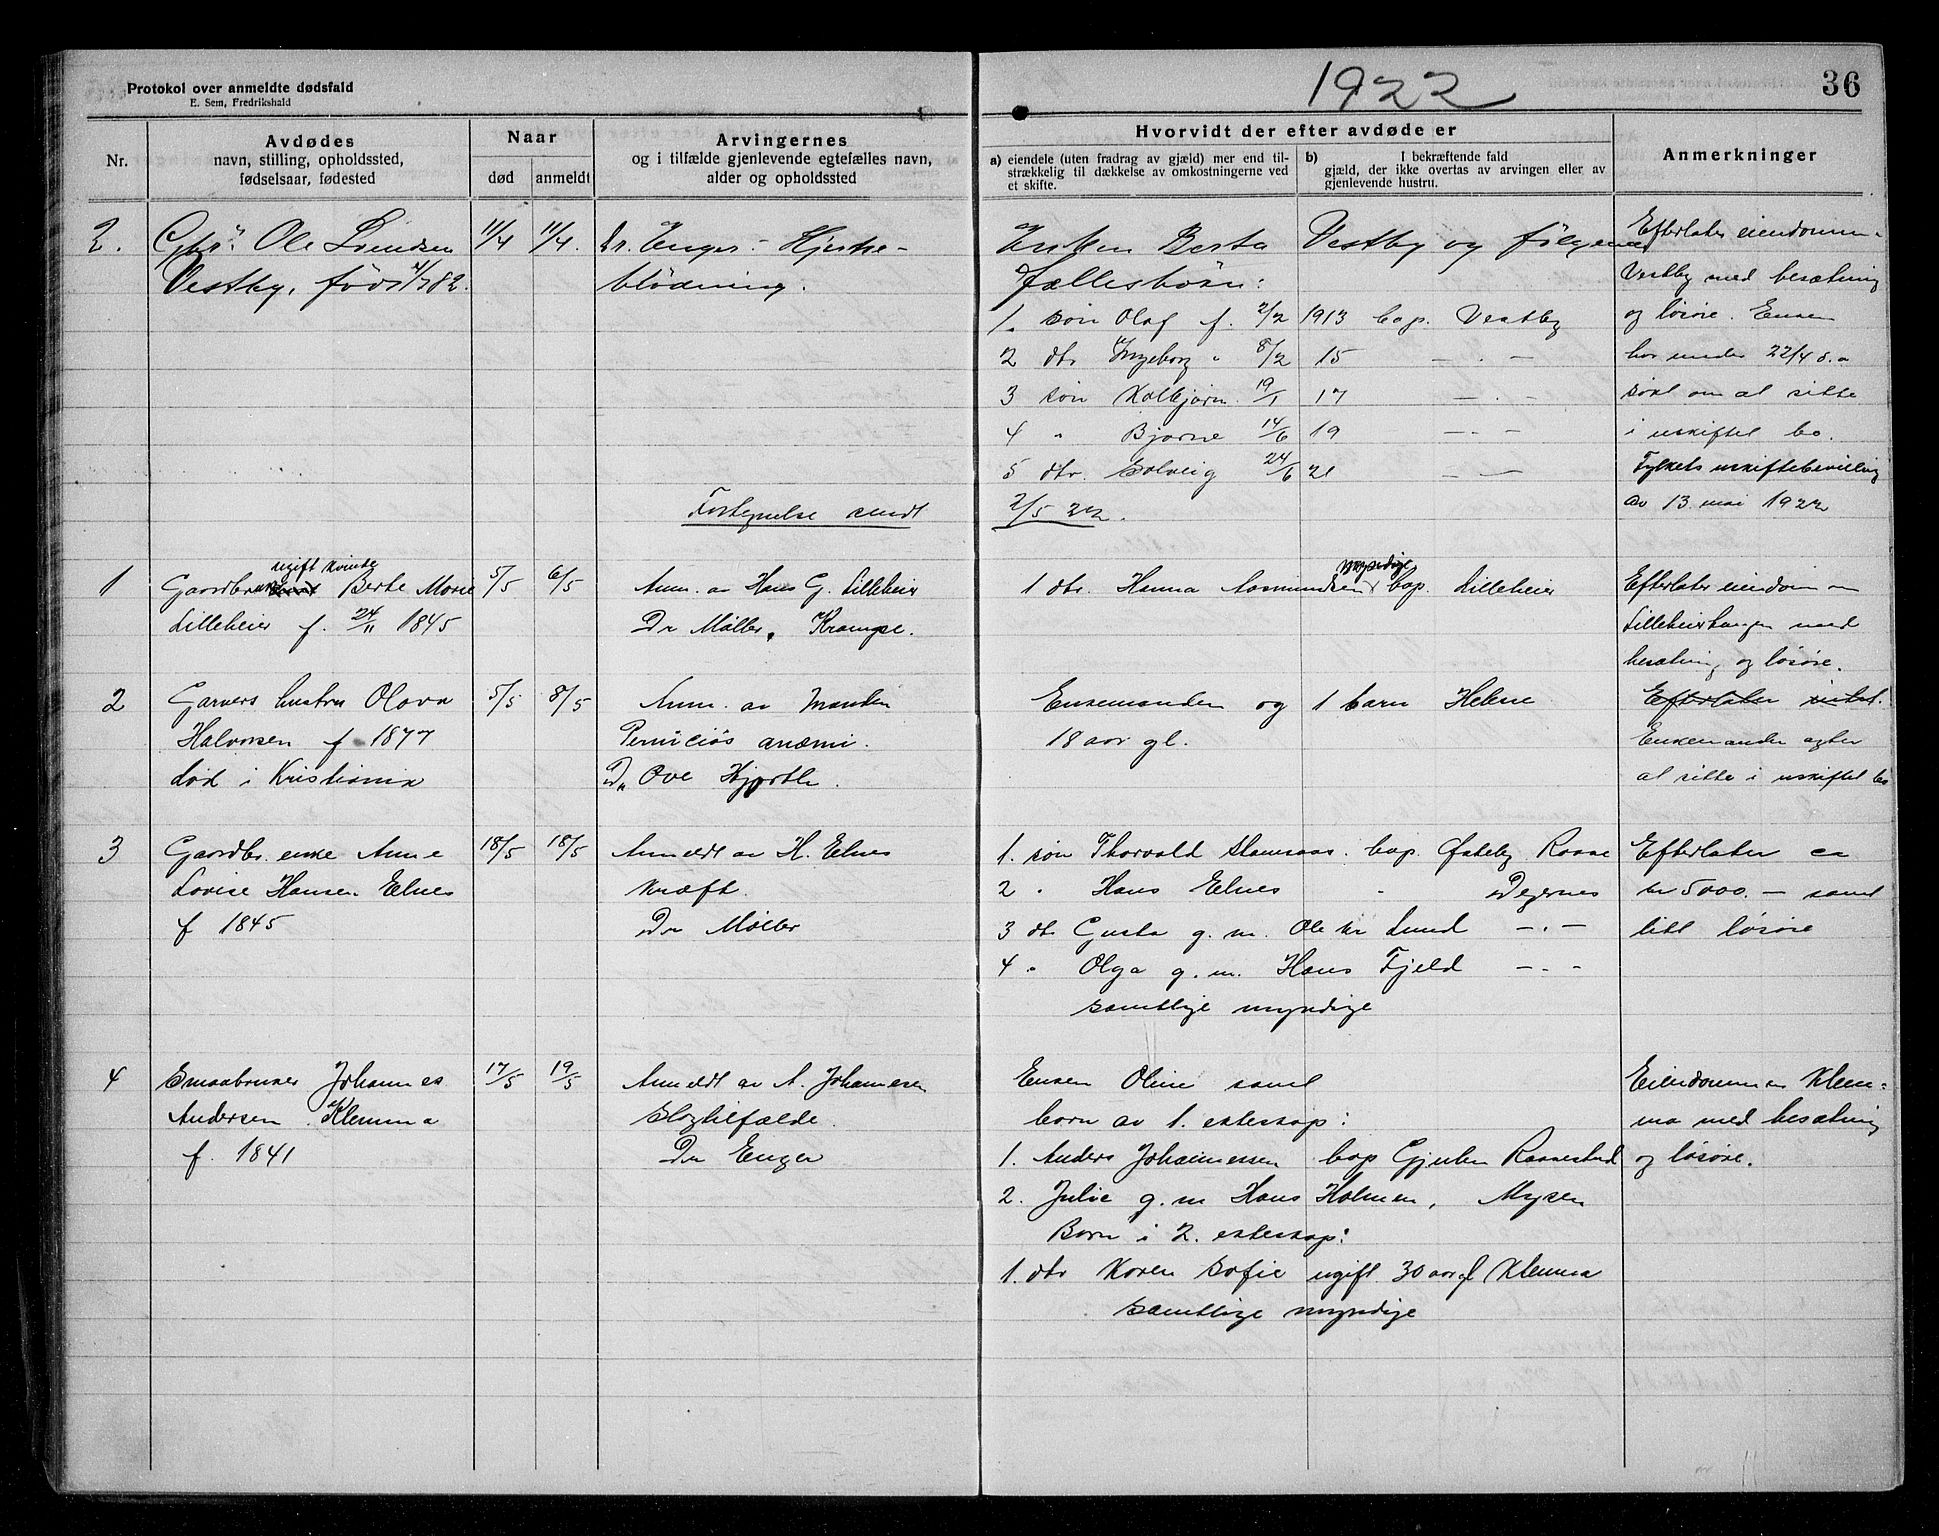 Protokol over anmeldte dødsfald
E. Sem, Fredrikshald
1922
36
Nr.
Avdødes
navn, stilling, opholdssted,
fødselsaar, fødested
Naar
død
anmeldt
Arvingernes
og i tilfælde gjenlevende egtefælles navn,
alder og opholdssted
Hvorvidt der efter avdøde er
a) eiendele (uten fradrag av gjæld) mer end til-
strækkelig til dækkelse av omkostningerne ved
et skifte.
b) I bekræftende fald
gjæld, der ikke overtas av arvingen eller av
gjenlevende hustru.
Anmerkninger
2. Gbr. Ole Svendsen 11/4 11/4. Dr. Enger - Hjerne-
Vestby, født 4/7 82. blödning.
Enken Berta Vestby og følgende
fællesbörn:
1. sön Olaf f. 2/2 1913 bop. Vestby
2 dtr Ingeborg " 8/2 15 - " -
3 sön Kolbjørn 19/1 17 - " -
4 " Bjarne 14/6 19 - " -
5 dtr. Solveig 24/6 21 - " -
Fortegnelse sendt 2/5 22.
Efterlater eiendommen
Vestby med besætning
og løsøre. Enken
har under 22/4 d.a
søkt om at sitte
i uskiftet bo.
Fylkets uskiftebevilling
av 13 mai 1922
1 Gaardbr. ugift kvinde Berte Marie 5/5 6/5 Anm. av Hans G. Lilleheier
Lilleheier f. 24/11 1845 Dr Møller, Krampe.
1 dtr. Hanna Aamundsen myndig bop. Lilleheier
Efterlater eiendommen
Lilleheierhaugen med
besætning og løsøre.
2 Garvers hustru Olava 5/5 8/5 Anm. av manden
Halvorsen f 1877 Perniciøs anæmi.
død i Kristiania Dr Ove Hjorth.
Enkemanden og 1 barn Helene
18 aar gl.
Efterlater intet.
Enkemanden agter
at sitte i uskiftet bo
3 Gaardbr. enke Anne 18/5 18/5 Anmeldt av H. Elnes
Lovise Hansen Elnes kræft.
f 1845 Dr Møller
1. søn Thorvald bop. Østeby Raae
2 " Hans Elnes " Degernes
3 dtr Gusta g. m. Ole Lund - " -
4 " Olga g. m. Hans Fjeld - " -
samtlige myndige
Efterlater ca
kr 5000.- samt
litt løsøre
4 Smaabruker Johannes 17/5 19/5 Anmeldt av A. Johannesen
Andersen Klemma slagtilfælde.
f. 1841 Dr Enger
Enken Oline samt
børn av 1. ekteskap:
1. Anders Johannessen bop Rakkestad
2. Julie g. m Hans Holmen, Mysen
Børn i 2. ekteskap:
1. dtr Karen Sofie ugift 30 aar gl Klemma
samtlige myndige
Eiendommen Klem-
ma med besætning
og løsøre.